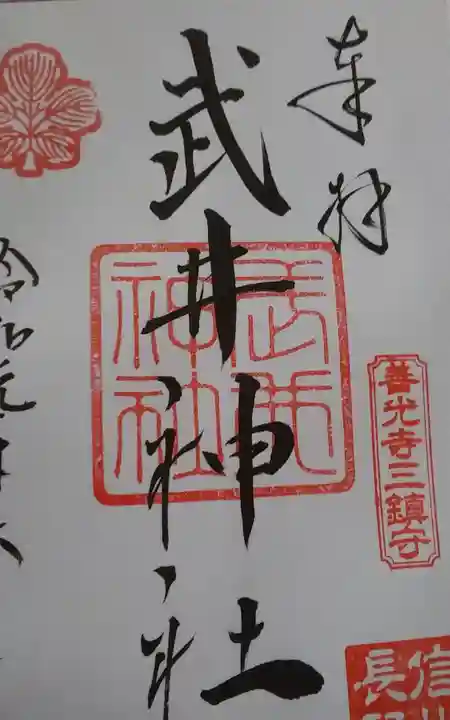 奉拝
善光寺三鎮守
信
長
武井神社
武井神社
令和元年